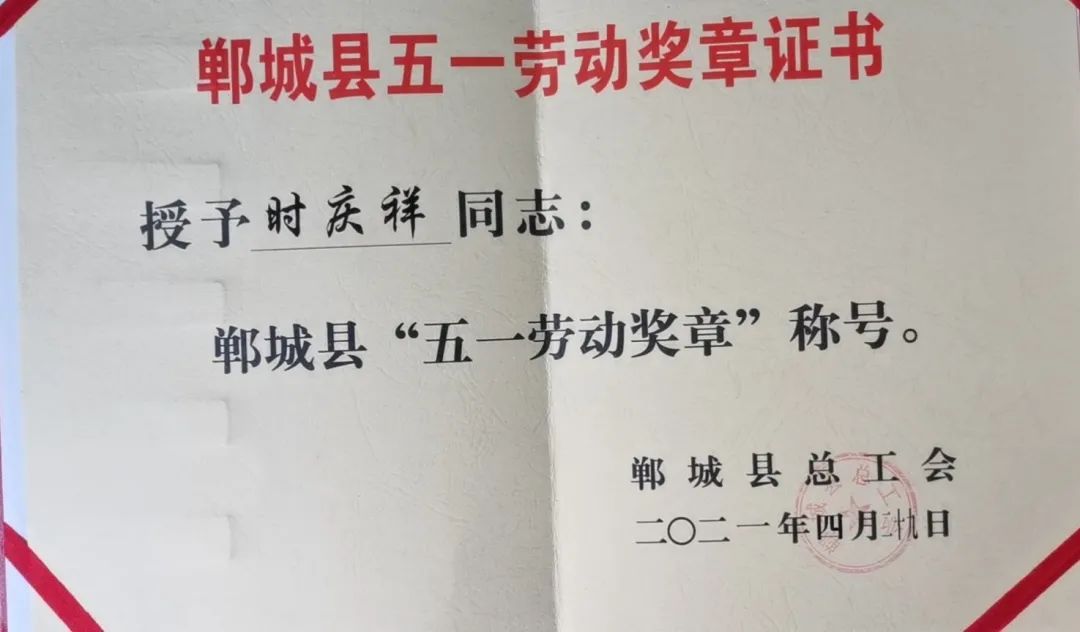 郸城县五一劳动奖章证书
授予时庆祥同志：
郸城县“五一劳动奖章”称号。
郸城县总工会
二〇二一年四月二十九日